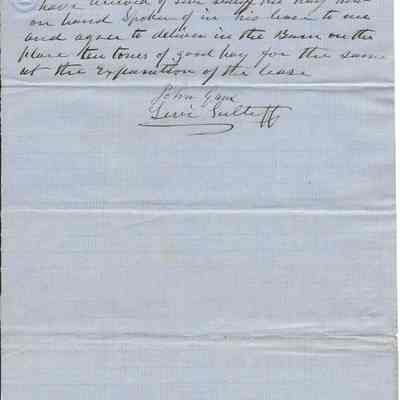 have
on hand Spoken of in his lease to me
and agree to deliver in the Barn on the
place ten tones of good hay for the same
at the Expiration of the lease
John
Levi